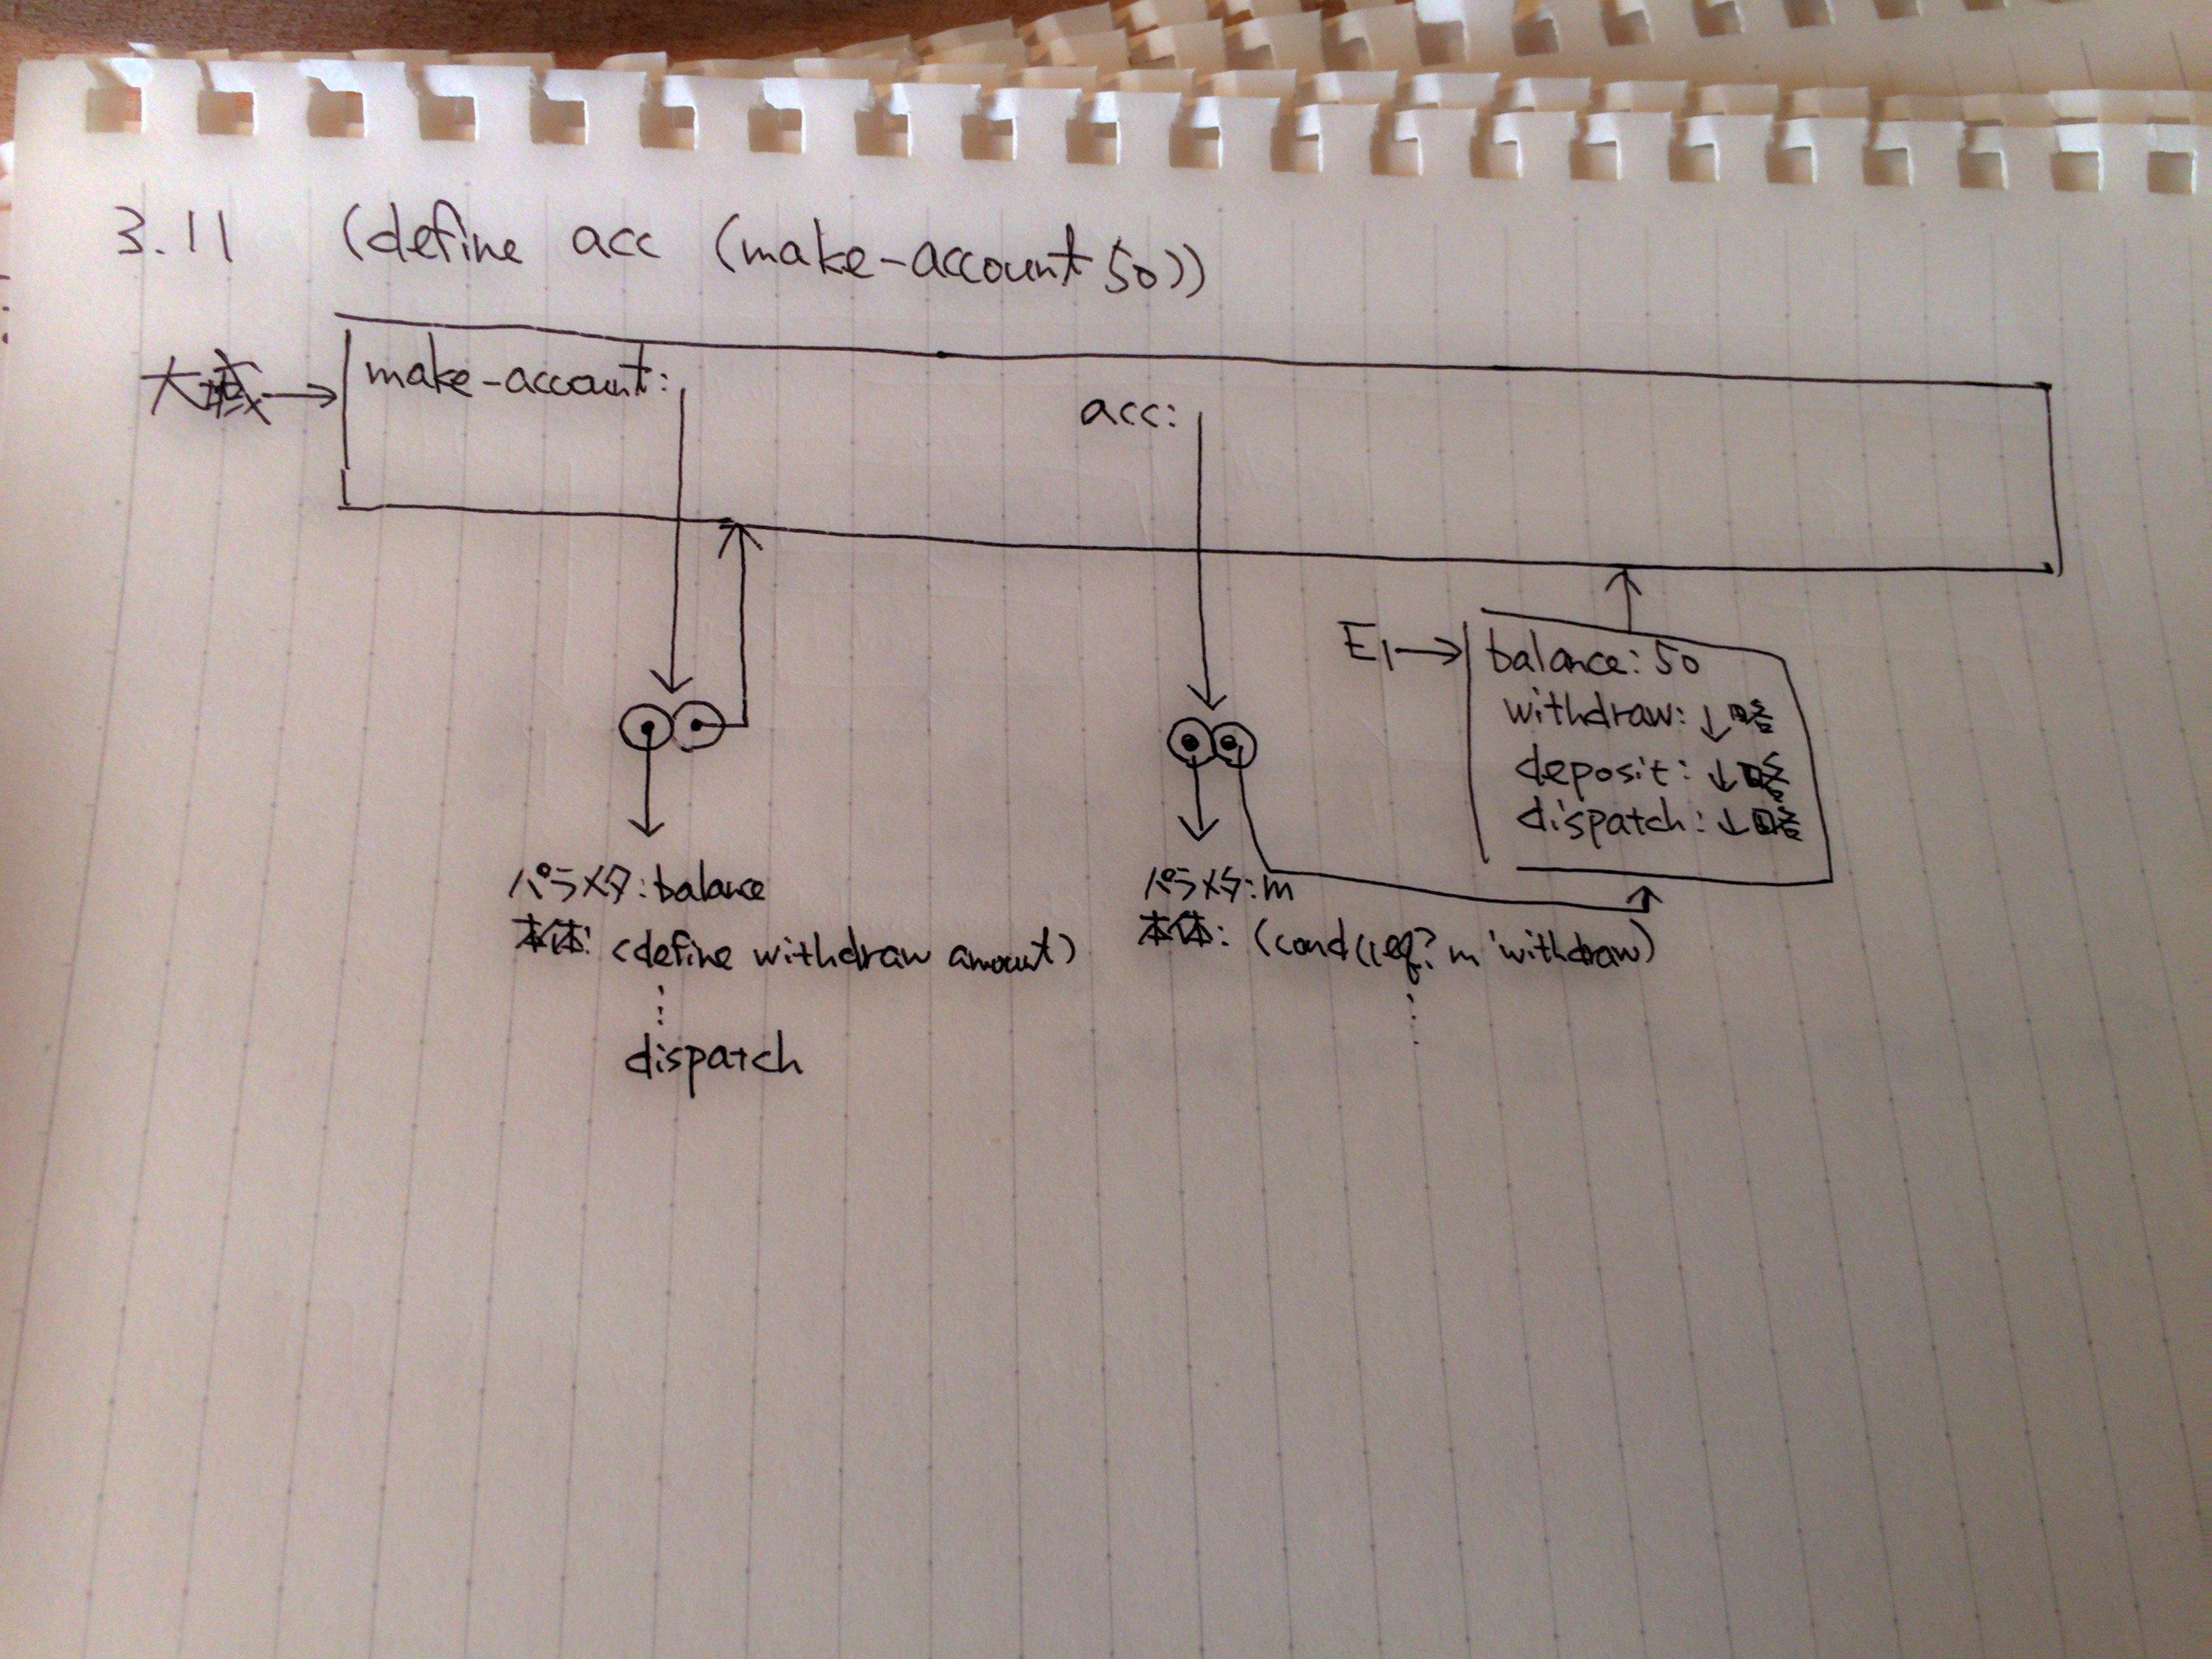 3.11 (define acc (make-account 50))
大域→
make-account:
acc:
E1→
balance: 50
withdraw: ↓略
deposit: ↓略
dispatch: ↓略
パラメタ: balance
本体: (define withdraw amount)
⋮
dispatch
パラメタ: m
本体: (cond ((eq? m 'withdraw)
⋮